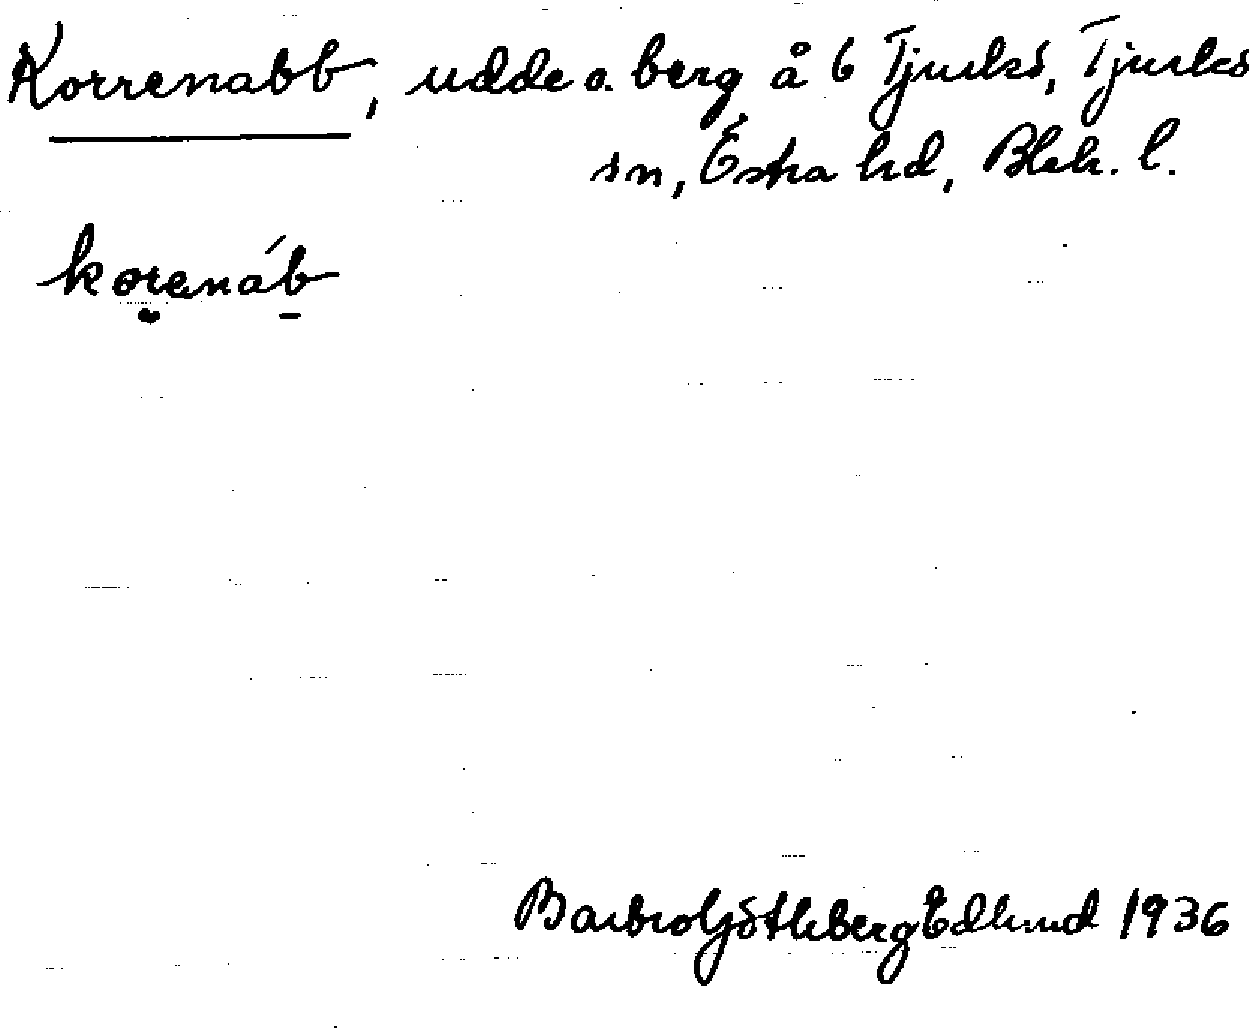 Korrenabb, udde o. berg å ö Tjurkö, Tjurkö
sn, Östra hd, Blek. l.
korenáb
Barbro Götleberg Edlund 1936